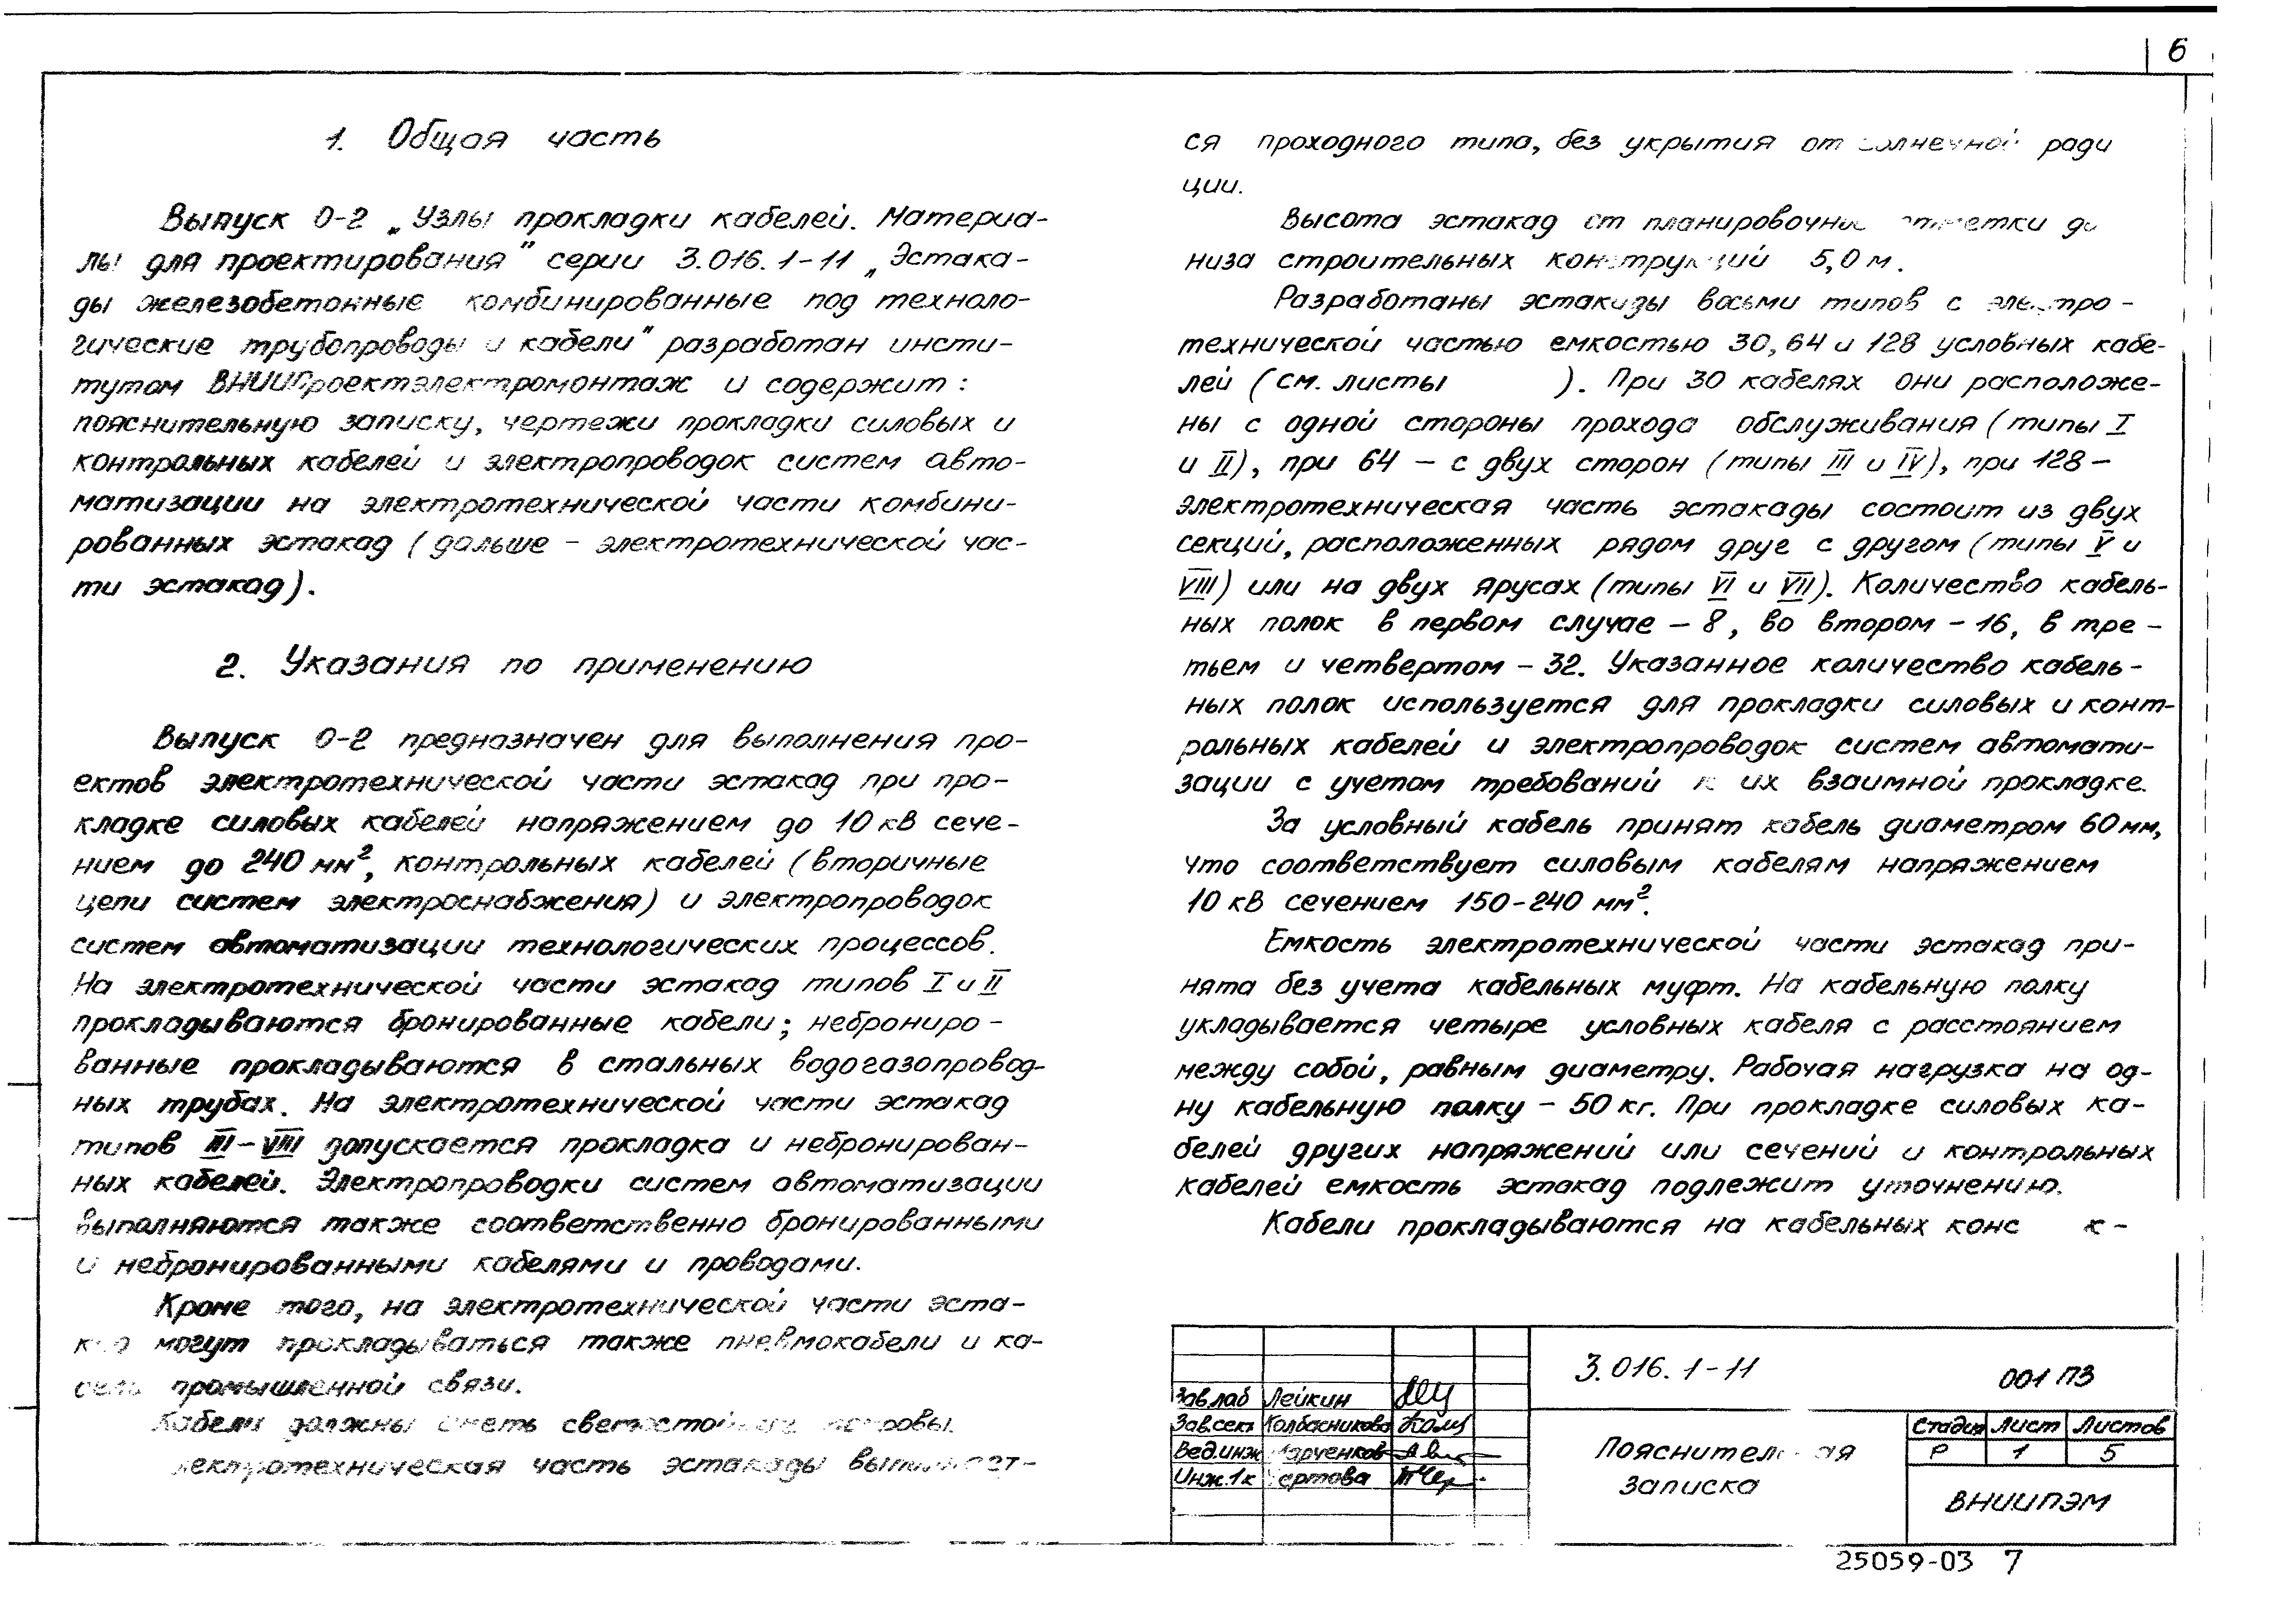 6
1. Общая часть
Выпуск 0-2 „Узлы прокладки кабелей. Материа-
лы для проектирования" серии 3.016.1-11 „Эстака-
ды железобетонные комбинированные под техноло-
гические трубопроводы и кабели" разработан инсти-
тутом ВНИИПроектэлектромонтаж и содержит:
пояснительную записку, чертежи прокладки силовых и
контрольных кабелей и электропроводок систем авто-
матизации на электротехнической части комбини-
рованных эстакад (дальше - электротехнической час-
ти эстакад).
2. Указания по применению
Выпуск 0-2 предназначен для выполнения про-
ектов электротехнической части эстакад при про-
кладке силовых кабелей напряжением до 10 кВ сече-
нием до 240 мм², контрольных кабелей (вторичные
цепи систем электроснабжения) и электропроводок
систем автоматизации технологических процессов.
На электротехнической части эстакад типов I и II
прокладываются бронированные кабели; неброниро-
ванные прокладываются в стальных водогазопровод-
ных трубах. На электротехнической части эстакад
типов III-VIII допускается прокладка и небронирован-
ных кабелей. Электропроводки систем автоматизации
выполняются также соответственно бронированными
и небронированными кабелями и проводами.
Кроме того, на электротехнической части эста-
могут прокладываться также пневмокабели и ка-
промышленной связи.
Кабели должны иметь
часть эстакады
ся проходного типа, без укрытия от солнечной ради
ции.
Высота эстакад от планировочной отметки до
низа строительных конструкций 5,0 м.
Разработаны эстакады восьми типов с электро-
технической частью емкостью 30, 64 и 128 условных кабе-
лей (см. листы ). При 30 кабелях они расположе-
ны с одной стороны прохода обслуживания (типы I
и II), при 64 - с двух сторон (типы III и IV), при 128 -
электротехническая часть эстакады состоит из двух
секций, расположенных рядом друг с другом (типы V и
VIII) или на двух ярусах (типы VI и VII). Количество кабель-
ных полок в первом случае - 8, во втором - 16, в тре-
тьем и четвертом - 32. Указанное количество кабель-
ных полок используется для прокладки силовых и конт-
рольных кабелей и электропроводок систем автомати-
зации с учетом требований к их взаимной прокладке.
За условный кабель принят кабель диаметром 60 мм,
что соответствует силовым кабелям напряжением
10 кВ сечением 150-240 мм².
Емкость электротехнической части эстакад при-
нята без учета кабельных муфт. На кабельную полку
укладывается четыре условных кабеля с расстоянием
между собой, равным диаметру. Рабочая нагрузка на од-
ну кабельную полку - 50 кг. При прокладке силовых ка-
белей других напряжений или сечений и контрольных
кабелей емкость эстакад подлежит уточнению.
Кабели прокладываются на кабельных конс к-
3.016.1-11 001 ПЗ
Зав.лаб Лейкин
Зав.сект Колбасникова
Вед.инж
Инж.1к
Пояснительная
записка
Стадия Лист Листов
Р 1 5
ВНИИПЭМ
25059-03 7